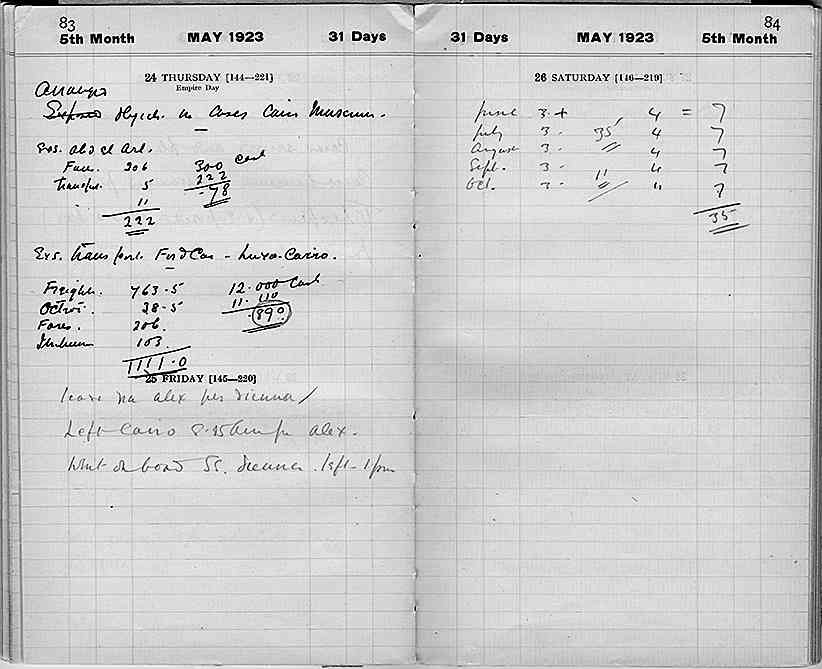 83
5th Month MAY 1923 31 Days
24 THURSDAY [144—221]
Empire Day
Arranged
Exposed Objects in Cases Cairo Museum.
Exs. Abd el Art.
Fare. 206 300 Cash
Transpt. 5 222
11 78
222
Exs. Transport Ford Car - Luxor-Cairo.
Freight. 763.5 12.000 Cash
Octroi. 38.5 11.110
Fares. 206. .890
103
1111.0
25 FRIDAY [145—220]
leave via Alex per Vienna
Left Cairo 8.25 am for Alex.
Went on board SS. Vienna. left 1 pm
84
31 Days MAY 1923 5th Month
26 SATURDAY [146—219]
June 3 + 4 = 7
July 3 - 35 4 7
August 3 - 4 7
Sept. 3 - 4 7
Oct. 3 - 11 4 7
35